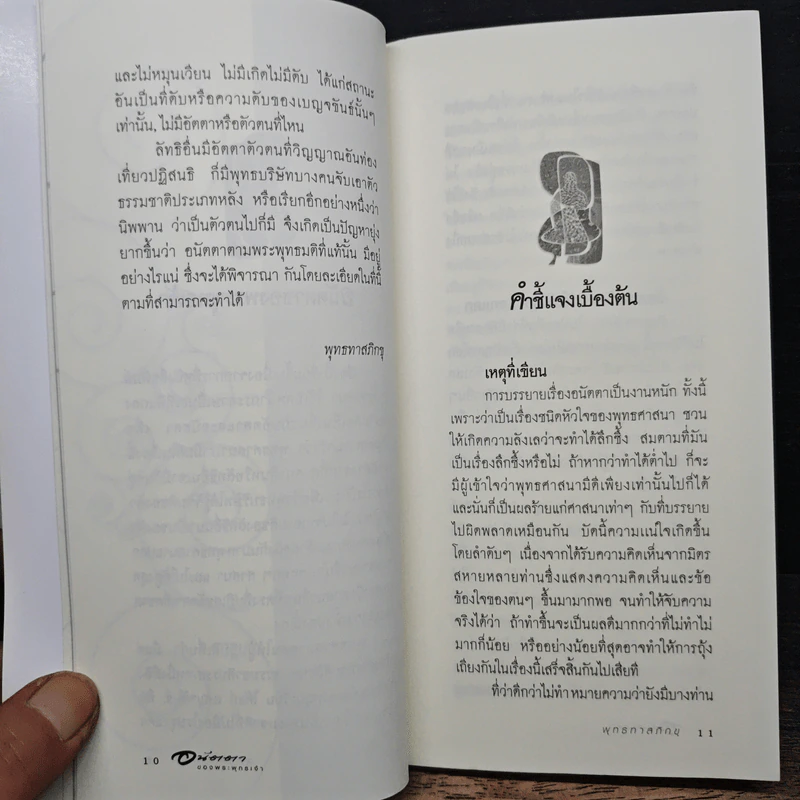 และไม่หมุนเวียน ไม่มีเกิดไม่มีดับ ได้แก่สถานะ
อันเป็นที่ดับหรือความดับของเบญจขันธ์นั้นๆ
เท่านั้น, ไม่มีอัตตาหรือตัวตนที่ไหน
ลัทธิอื่นมีอัตตาตัวตนที่วิญญาณอันท่อง
เที่ยวปฏิสนธิ ก็มีพุทธบริษัทบางคนจับเอาตัว
ธรรมชาติประเภทหลัง หรือเรียกอีกอย่างหนึ่งว่า
นิพพาน ว่าเป็นตัวตนไปก็มี จึงเกิดเป็นปัญหายุ่ง
ยากขึ้นว่า อนัตตาตามพระพุทธมติที่แท้นั้น มีอยู่
อย่างไรแน่ ซึ่งจะได้พิจารณา กันโดยละเอียดในที่นี้
ตามที่สามารถจะทำได้
พุทธทาสภิกขุ
10 อนัตตา
ของพระพุทธเจ้า
คำชี้แจงเบื้องต้น
เหตุที่เขียน
การบรรยายเรื่องอนัตตาเป็นงานหนัก ทั้งนี้
เพราะว่าเป็นเรื่องชนิดหัวใจของพุทธศาสนา ชวน
ให้เกิดความลังเลว่าจะทำได้ลึกซึ้ง สมตามที่มัน
เป็นเรื่องลึกซึ้งหรือไม่ ถ้าหากว่าทำได้ต่ำไป ก็จะ
มีผู้เข้าใจว่าพุทธศาสนามีดีเพียงเท่านั้นไปก็ได้
และนั่นก็เป็นผลร้ายแก่ศาสนาเท่าๆ กับที่บรรยาย
ไปผิดพลาดเหมือนกัน บัดนี้ความแน่ใจเกิดขึ้น
โดยลำดับๆ เนื่องจากได้รับความคิดเห็นจากมิตร
สหายหลายท่านซึ่งแสดงความคิดเห็นและข้อ
ข้องใจของตนๆ ขึ้นมามากพอ จนทำให้จับความ
จริงได้ว่า ถ้าทำขึ้นจะเป็นผลดีมากกว่าที่ไม่ทำไม่
มากก็น้อย หรืออย่างน้อยที่สุดอาจทำให้การถุ้ง
เถียงกันในเรื่องนี้เสร็จสิ้นกันไปเสียที
ที่ว่าดีกว่าไม่ทำหมายความว่ายังมีบางท่าน
พุทธทาสภิกขุ 11